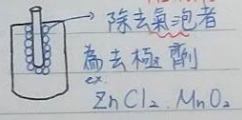 除去氣泡者
為去極劑
ex.
ZnCl₂、MnO₂